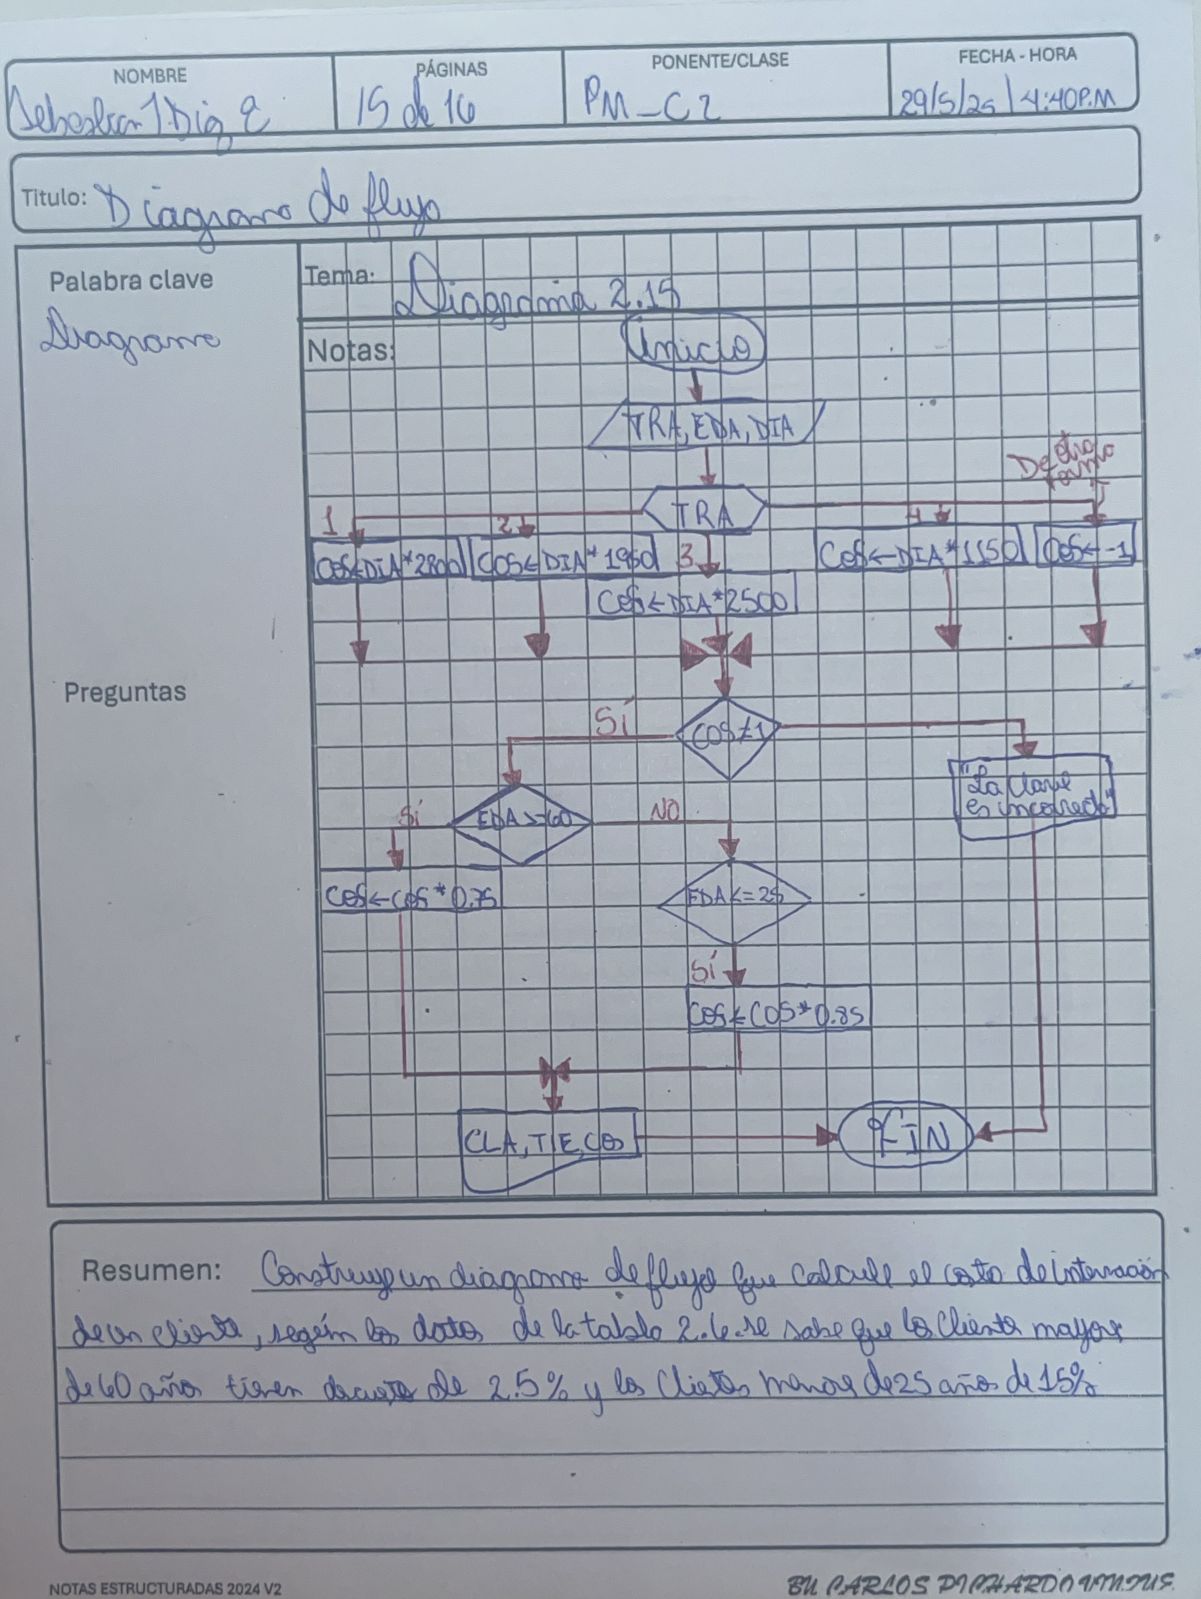 NOMBRE
PÁGINAS
PONENTE/CLASE
FECHA - HORA
15 de 16
PM-C2
29/5/25 | 4:40P.M
Titulo: Diagrama de flujo
Palabra clave
Diagrama
Tema: Diagrama 2.15
Notas:
Inicio
TRA, EDA, DIA
De otra forma
TRA
1
2
3
4
COS←DIA*2800
COS←DIA*1950
COS←DIA*1150
COS←-1
COS←DIA*2500
Preguntas
COS≠1
SÍ
"La clave
es incorrecta"
EDA>=60
Sí
NO
COS←COS*0.75
EDA<=25
SÍ
COS←COS*0.85
CLA, TIE, COS
FIN
Resumen: Construye un diagrama de flujo que calcule el costo de internación
de un cliente, según los datos de la tabla 2.6. se sabe que los cliente mayor
de 60 años tienen de 2.5% y los menor de 25 años de 15%
NOTAS ESTRUCTURADAS 2024 V2
BY CARLOS PICHARDO